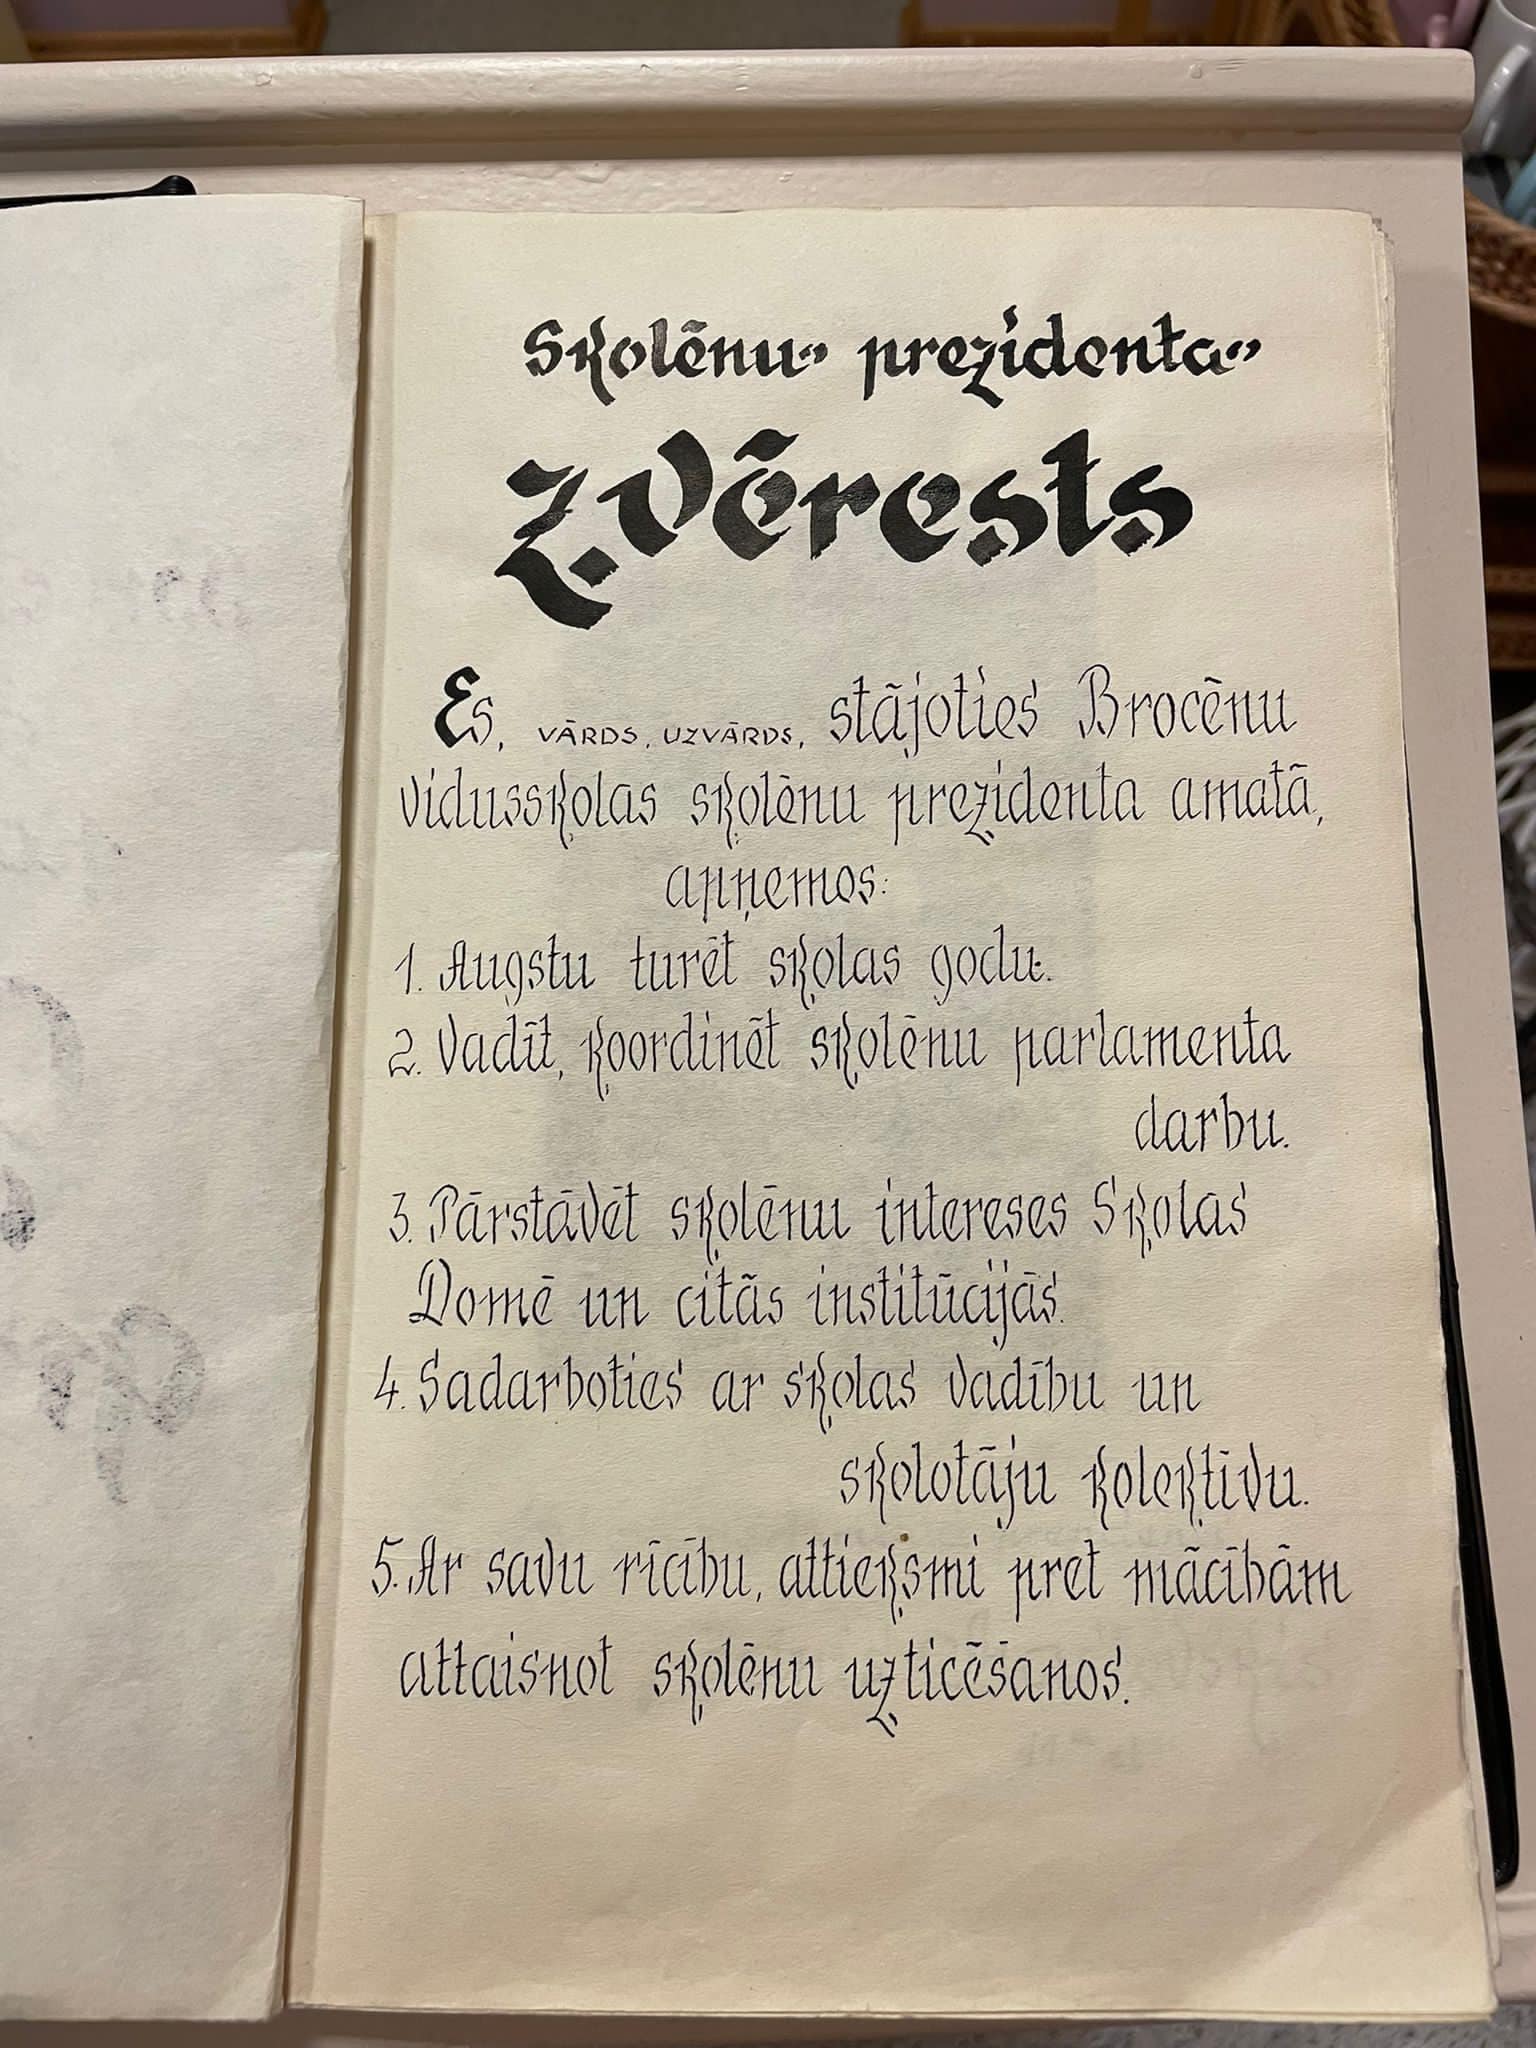 Skolēnu prezidenta
Zvērests
Es, VĀRDS, UZVĀRDS, stājoties Brocēnu
vidusskolas skolēnu prezidenta amatā,
apņemos:
1. Augstu turēt skolas godu.
2. Vadīt, koordinēt skolēnu parlamenta
darbu.
3. Pārstāvēt skolēnu intereses Skolas
Domē un citās institūcijās.
4. Sadarboties ar skolas vadību un
skolotāju kolektīvu.
5. Ar savu rīcību, attieksmi pret mācībām
attaisnot skolēnu uzticēšanos.